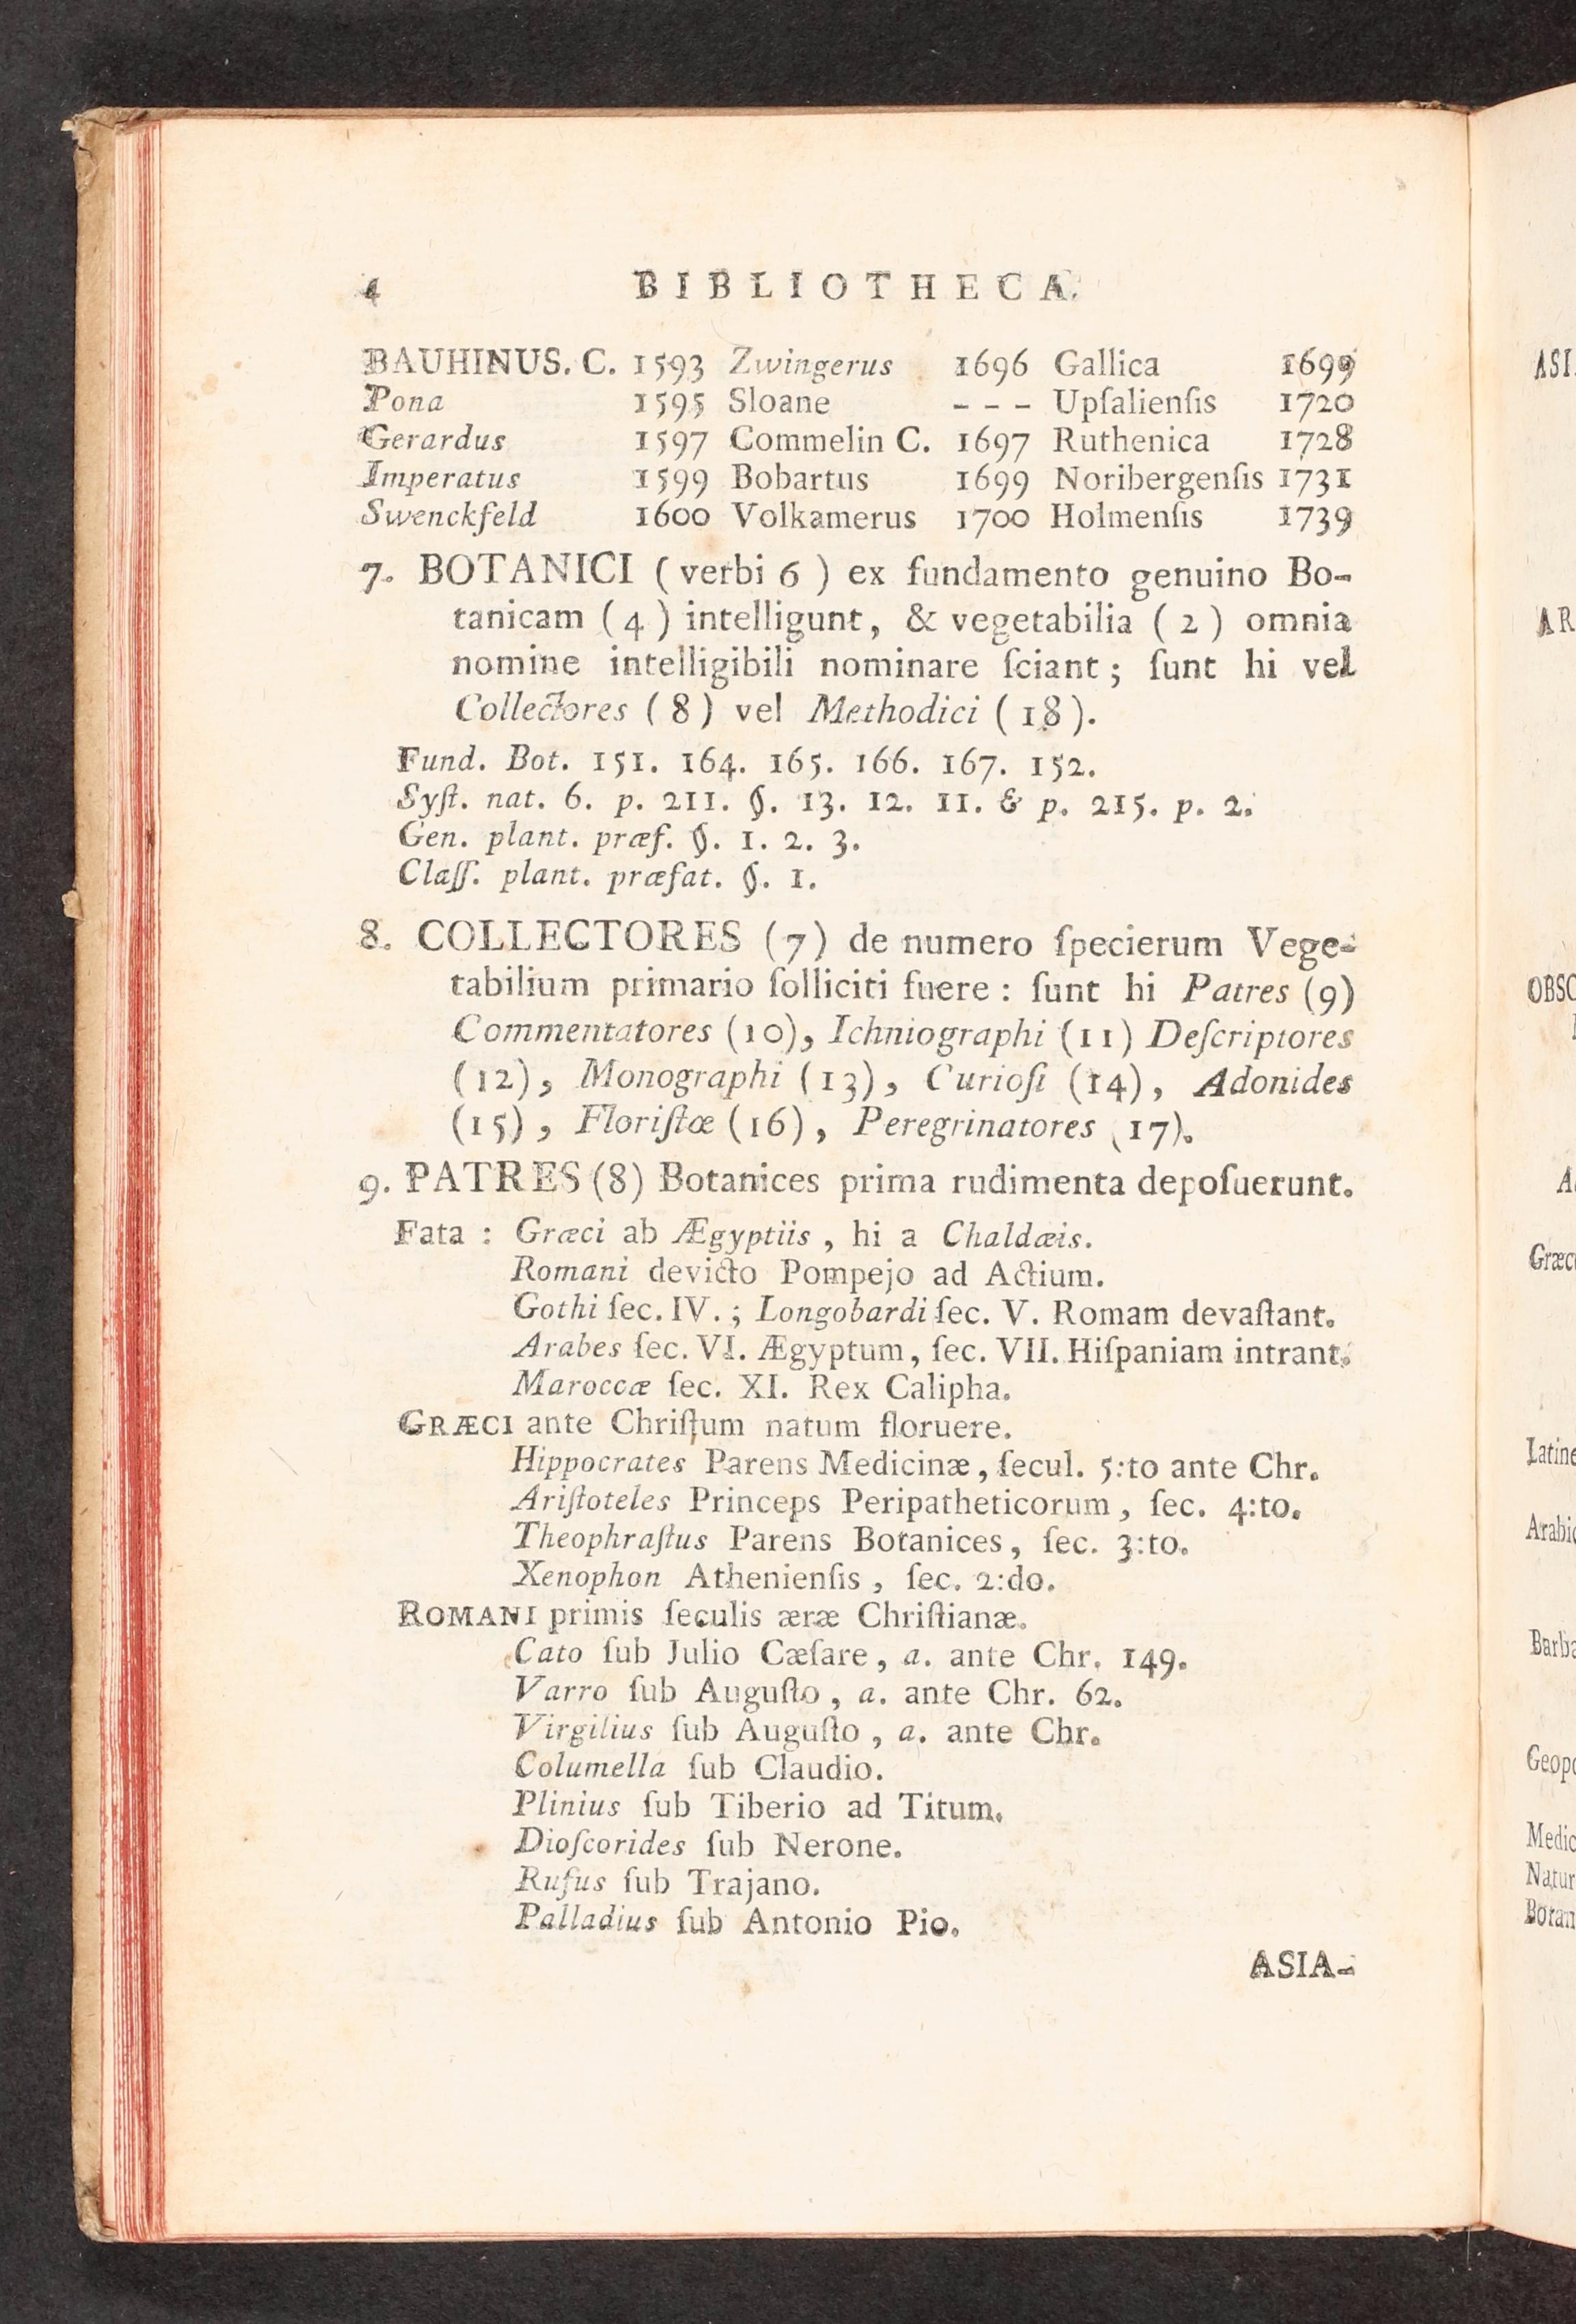 4 BIBLIOTHECA.
BAUHINUS. C. 1593 Zwingerus 1696 Gallica 1699
Pona 1595 Sloane - - - Upſalienſis 1720
Gerardus 1597 Commelin C. 1697 Ruthenica 1728
Imperatus 1599 Bobartus 1699 Noribergenſis 1731
Swenckfeld 1600 Volkamerus 1700 Holmenſis 1739
7. BOTANICI (verbi 6) ex fundamento genuino Bo-
tanicam (4) intelligunt, & vegetabilia (2) omnia
nomine intelligibili nominare ſciant; ſunt hi vel
Collectores (8) vel Methodici (18).
Fund. Bot. 151. 164. 165. 166. 167. 152.
Syſt. nat. 6. p. 211. §. 13. 12. 11. & p. 215. p. 2.
Gen. plant. præf. §. 1. 2. 3.
Claſſ. plant. præfat. §. 1.
8. COLLECTORES (7) de numero ſpecierum Vege-
tabilium primario ſolliciti fuere: ſunt hi Patres (9)
Commentatores (10), Ichniographi (11) Deſcriptores
(12), Monographi (13), Curioſi (14), Adonides
(15), Floriſtæ (16), Peregrinatores (17).
9. PATRES (8) Botanices prima rudimenta depoſuerunt.
Fata : Græci ab Ægyptiis, hi a Chaldæis.
Romani devicto Pompejo ad Actium.
Gothi ſec. IV.; Longobardi ſec. V. Romam devaſtant.
Arabes ſec. VI. Ægyptum, ſec. VII. Hiſpaniam intrant.
Maroccæ ſec. XI. Rex Calipha.
GRÆCI ante Chriſtum natum floruere.
Hippocrates Parens Medicinæ, ſecul. 5:to ante Chr.
Ariſtoteles Princeps Peripatheticorum, ſec. 4:to.
Theophraſtus Parens Botanices, ſec. 3:to.
Xenophon Athenienſis, ſec. 2:do.
ROMANI primis ſeculis æræ Chriſtianæ.
Cato ſub Julio Cæſare, a. ante Chr. 149.
Varro ſub Auguſto, a. ante Chr. 62.
Virgilius ſub Auguſto, a. ante Chr.
Columella ſub Claudio.
Plinius ſub Tiberio ad Titum.
Dioſcorides ſub Nerone.
Rufus ſub Trajano.
Palladius ſub Antonio Pio.
ASIA-
ASI
AR
OBSC
Græc
Latine
Arabi
Barba
Geop
Medic
Natur
Botan